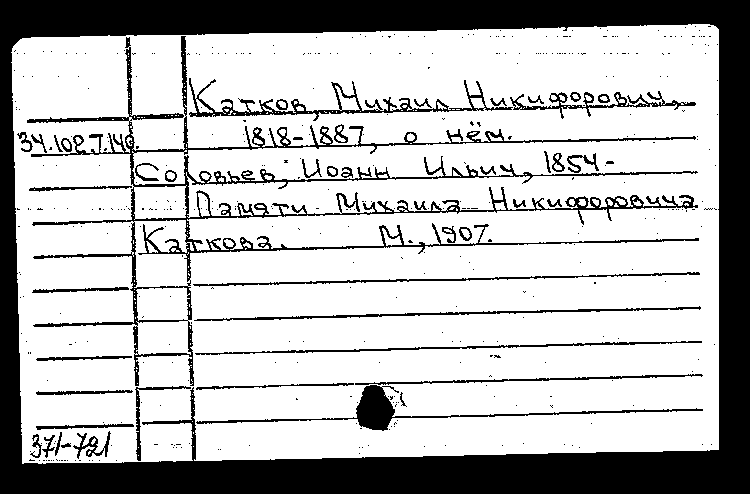 Катков, Михаил Никифорович,
34.102.7.140. 1818-1887, о нём.
Соловьев, Иоанн Ильич, 1854-
Памяти Михаила Никифоровича
Каткова. М., 1907.
371-721